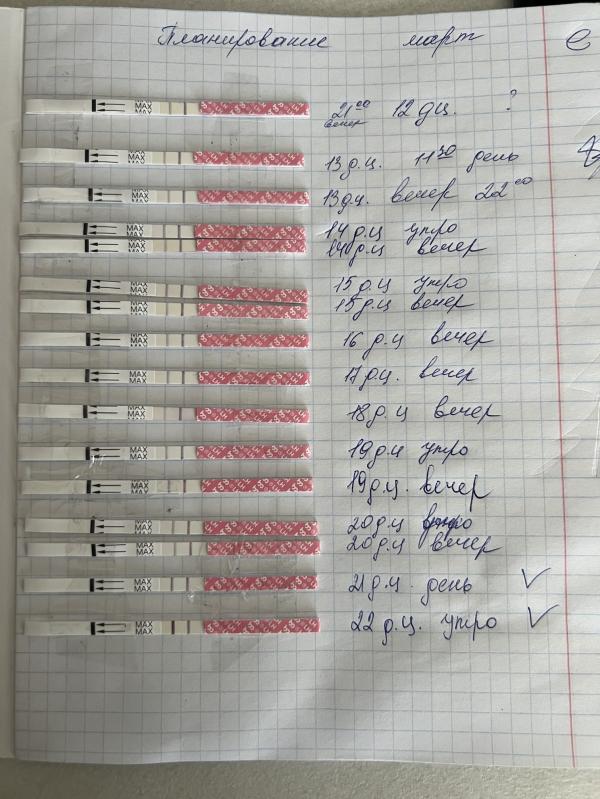 Планирование март е
MAX MAX 21⁰⁰ вечер 12 д.ц. ?
MAX MAX 13 д.ц. 11³⁰ день
MAX MAX 13 д.ц. вечер 22⁰⁰
MAX MAX 14 д.ц утро
MAX MAX 14 д.ц вечер
MAX 15 д.ц утро
MAX 15 д.ц вечер
MAX MAX 16 д.ц вечер
MAX MAX 17 д.ц. вечер
MAX MAX 18 д.ц вечер
MAX MAX 19 д.ц утро
MAX MAX 19 д.ц. вечер
MAX 20 д.ц утро
MAX 20 д.ц вечер
MAX MAX 21 д.ц. день ✓
MAX MAX 22 д.ц. утро ✓